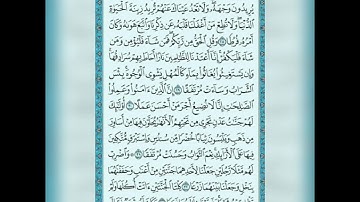 يُرِيدُونَ وَجْهَهُۥ وَلَا تَعْدُ عَيْنَاكَ عَنْهُمْ تُرِيدُ زِينَةَ ٱلْحَيَوٰةِ
ٱلدُّنْيَا وَلَا تُطِعْ مَنْ أَغْفَلْنَا قَلْبَهُۥ عَن ذِكْرِنَا وَٱتَّبَعَ هَوَىٰهُ وَكَانَ
أَمْرُهُۥ فُرُطًا ۝ وَقُلِ ٱلْحَقُّ مِن رَّبِّكُمْ فَمَن شَآءَ فَلْيُؤْمِن وَمَن
شَآءَ فَلْيَكْفُرْ إِنَّآ أَعْتَدْنَا لِلظَّٰلِمِينَ نَارًا أَحَاطَ بِهِمْ سُرَادِقُهَا
وَإِن يَسْتَغِيثُوا۟ يُغَاثُوا۟ بِمَآءٍ كَٱلْمُهْلِ يَشْوِى ٱلْوُجُوهَ بِئْسَ
ٱلشَّرَابُ وَسَآءَتْ مُرْتَفَقًا ۝ إِنَّ ٱلَّذِينَ ءَامَنُوا۟ وَعَمِلُوا۟
ٱلصَّٰلِحَٰتِ إِنَّا لَا نُضِيعُ أَجْرَ مَنْ أَحْسَنَ عَمَلًا ۝ أُو۟لَٰٓئِكَ
لَهُمْ جَنَّٰتُ عَدْنٍ تَجْرِى مِن تَحْتِهِمُ ٱلْأَنْهَٰرُ يُحَلَّوْنَ فِيهَا مِنْ أَسَاوِرَ
مِن ذَهَبٍ وَيَلْبَسُونَ ثِيَابًا خُضْرًا مِّن سُندُسٍ وَإِسْتَبْرَقٍ مُّتَّكِـِٔينَ
فِيهَا عَلَى ٱلْأَرَآئِكِ نِعْمَ ٱلثَّوَابُ وَحَسُنَتْ مُرْتَفَقًا ۝ وَٱضْرِبْ
لَهُم مَّثَلًا رَّجُلَيْنِ جَعَلْنَا لِأَحَدِهِمَا جَنَّتَيْنِ مِنْ أَعْنَٰبٍ وَحَفَفْنَٰهُمَا
بِنَخْلٍ وَجَعَلْنَا بَيْنَهُمَا زَرْعًا ۝ كِلْتَا ٱلْجَنَّتَيْنِ ءَاتَتْ أُكُلَهَا وَلَمْ